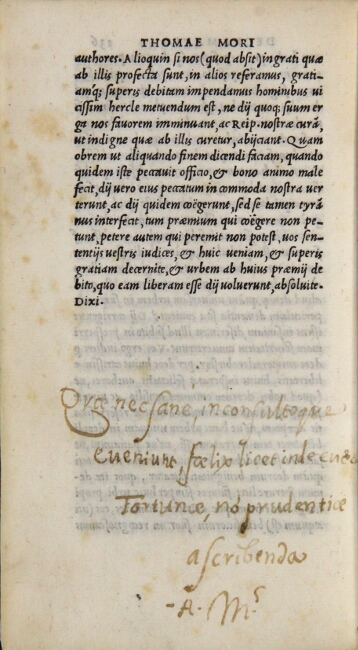 THOMAE MORI
authores. Alioquin si nos (quod absit) ingrati quæ
ab illis profecta sunt, in alios referamus, grati-
amq; superis debitam impendamus hominibus ui
cissim hercle metuendum est, ne dij quoq; suum er
ga nos fauorem imminuant, ac Reip. nostræ curã,
ut indigne quæ ab illis curetur, abijciant. Quam
obrem ut aliquando finem dicendi faciam, quando
quidem iste peccauit officio, & bono animo male
fecit, dij uero eius peccatum in commoda nostra uer
terunt, ac dij quidem coëgerunt, sed se tamen tyrã
nus interfecit, tum præmium qui coëgere non pe-
tunt, petere autem qui peremit non potest, uos sen-
tentijs uestris iudices, & huic ueniam, & superis
gratiam decernite, & urbem ab huius præmij de
bito, quo eam liberam esse dij uoluerunt, absoluite.
Dixi.
Quæ nec sane, inconsultoque
eueniunt, fœlix licet inde
Fortunæ, nõ prudentiæ
ascribenda
-A. Mr